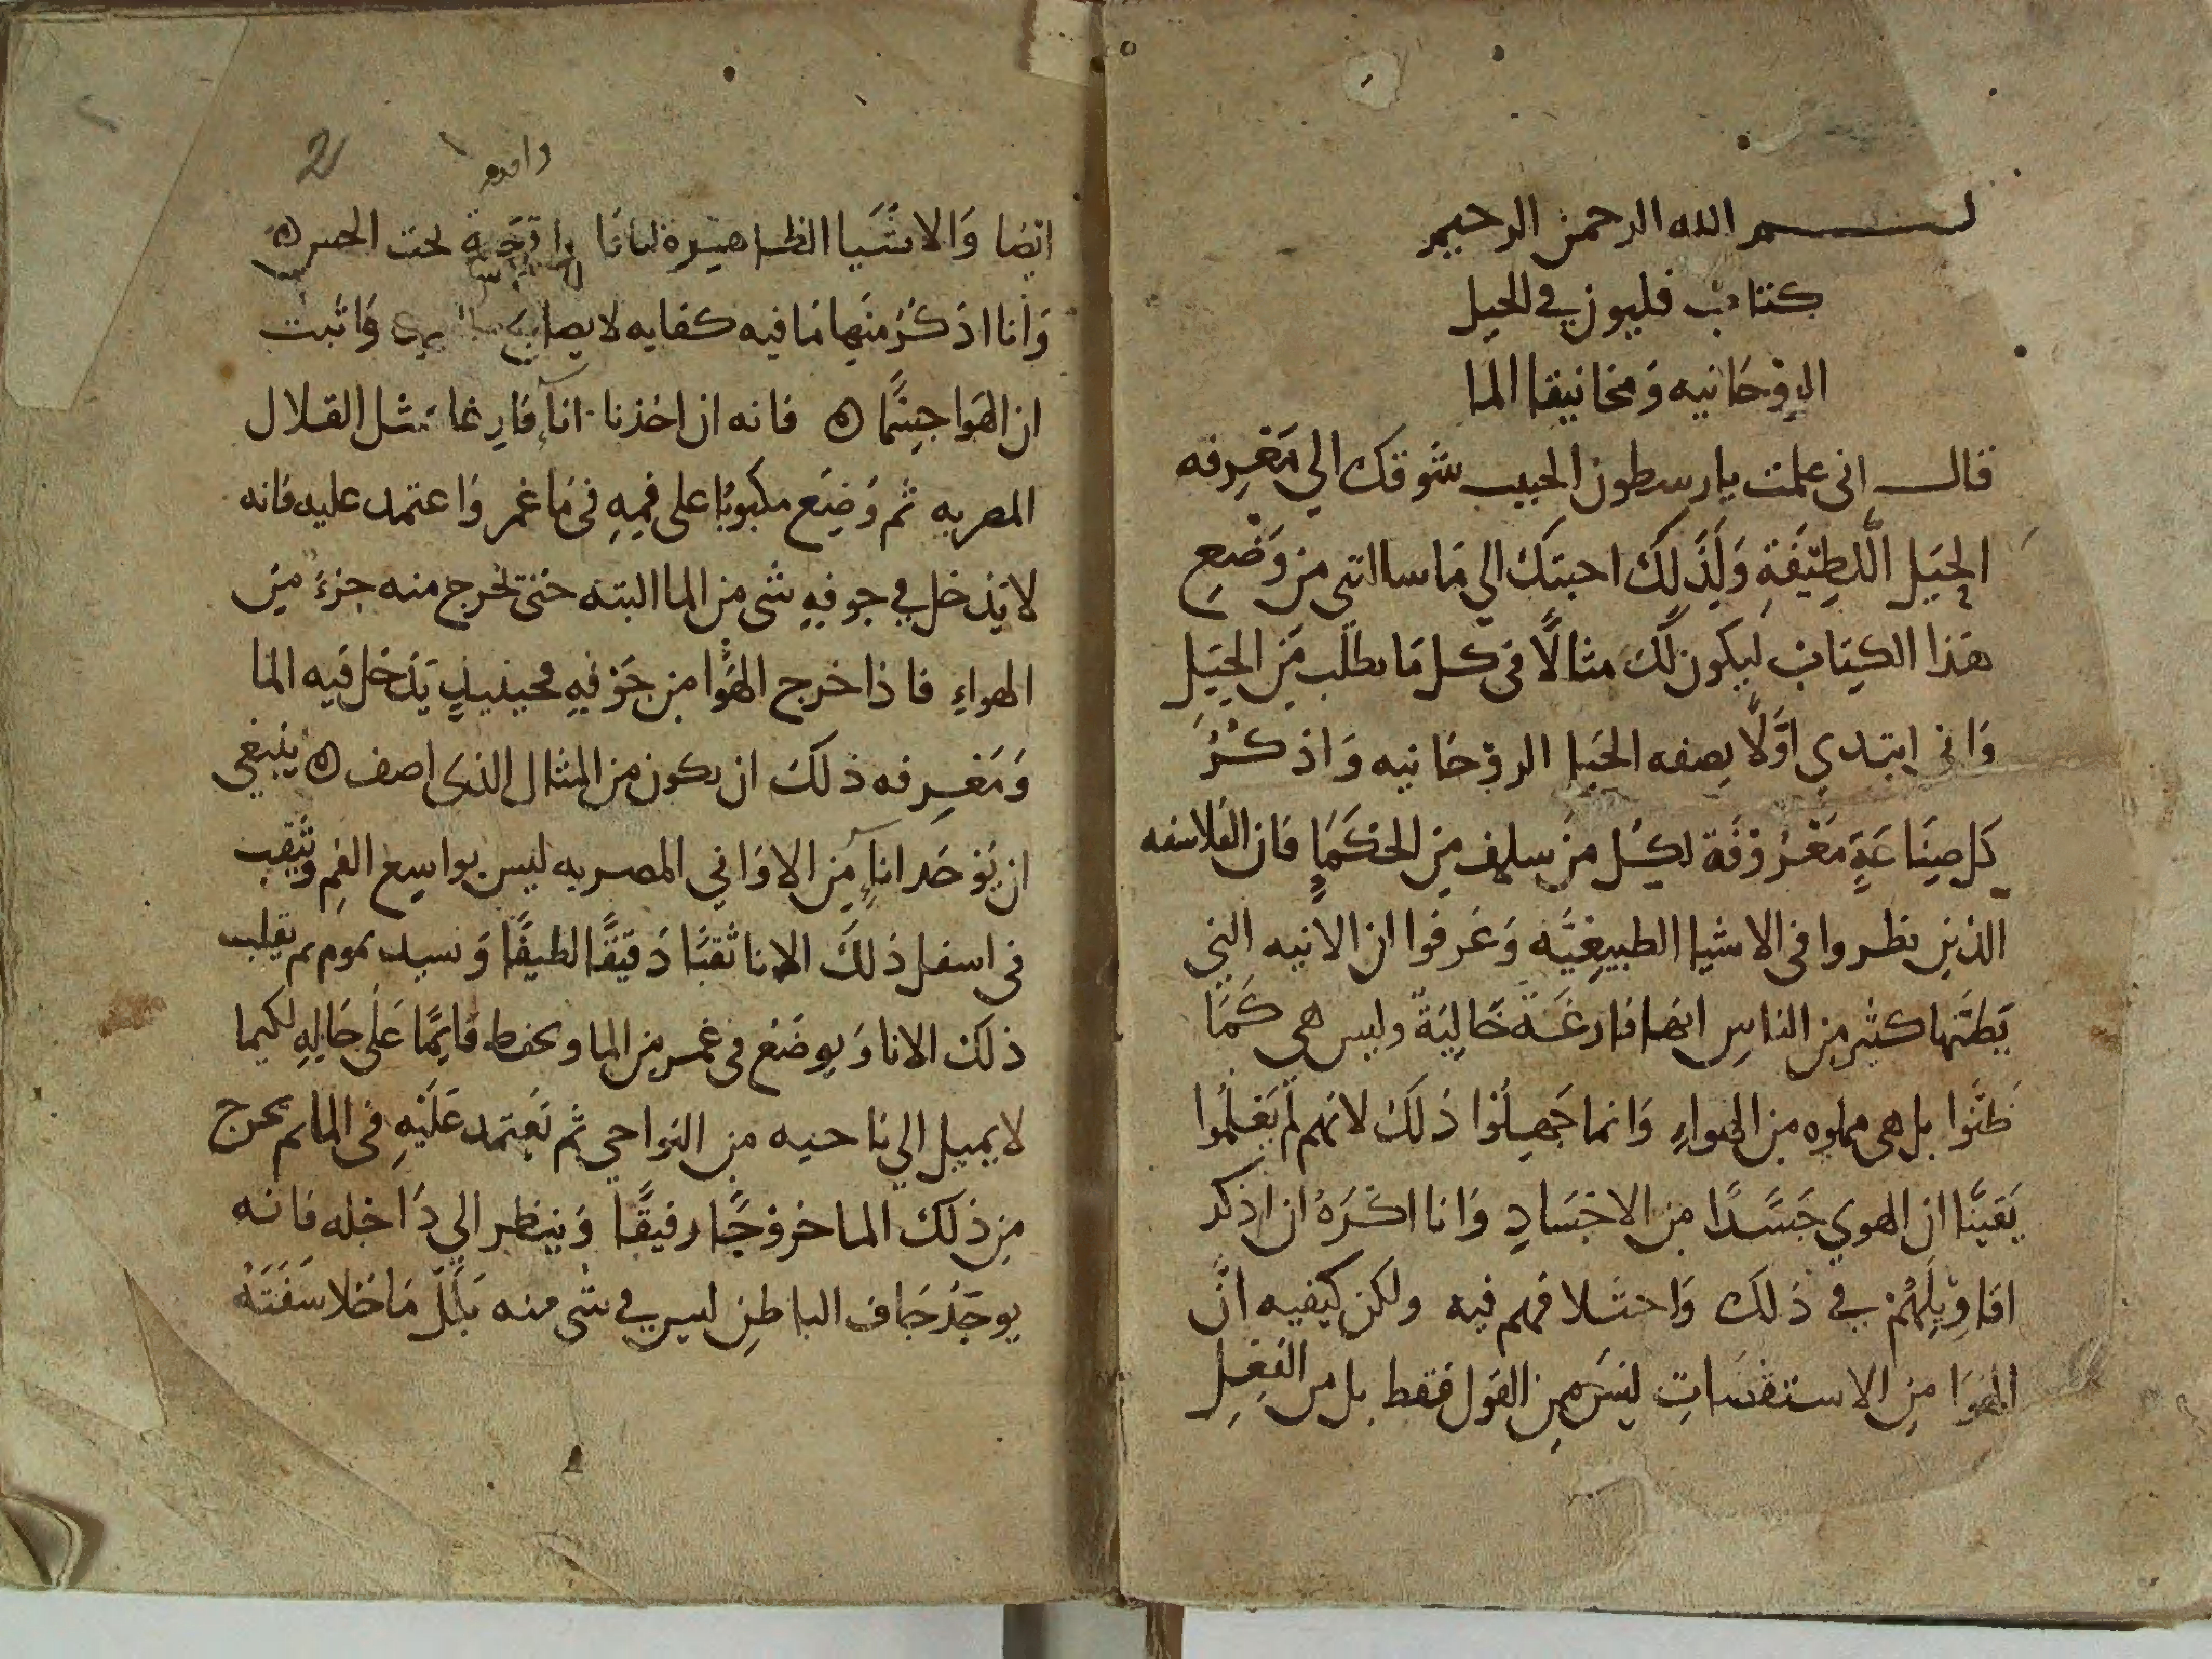 بسم الله الرحمن الرحيم
كتاب فليون في الحيل
الروحانيه وَمخانيقا الما
قال انى علمت يارسطون الحبيب شوقك الي مَعْرفه
الحِيَل اللَّطِيفَةِ وَلِذَلِكَ اجبتكَ الي مَا سالتني من وَضْعِ
هَذا الكِتاب ليكون لكَ مثالًا فى كل مَا تطلب مِن الحِيَل
وَانى ابتدي اوَّلًا بصفه الحيَل الروْحَانيه وَاذكرُ
كل صِنَاعَةٍ مَعْرُوْفَة لكل من سلف مِن الحكَمَاءِ فان الفلاسفه
الذين نظروا فى الاشيا الطبيعِيَّه وَعَرفوا ان الانيه التي
يَظنّها كثير من الناسِ انها فارغَة خَاليَة وليس هي كَمَا
ظَنّوا بل هى مملوه من الهواءِ وَانما جَهِلُوْا ذلكَ لانهم لم يَعْلمُوا
يَقينًا ان الهوي جَسَدًا من الاجْسَادِ وَانا اكْرَهُ ان اذكر
اقاوِيْلَهُمْ في ذلك وَاختلافهم فيه ولكن كيفيه انَّ
الهَوَا مِن الاستقسَاتِ ليسَ مِن القول فقط بل من الفِعْلِ
ايضا وَالاشيَا الظاهِرة لنا تحت الحس ه
وَانا اذكرُ منها مَا فيه كفايه وَاثبت
ان الهَوا جسْمًا ه فانه ان اخذنا اناءً فارِغا مثل القلال
المصريه ثم وُضِع مكبوبًا على فمِهِ فى مَا غمر وَاعتمد عليه فانه
لا يَدْخل في جوفِهِ شى من الما البته حَتى تخرج منه جزءٌ مِن
الهواءِ فاذا خرج الهَوا من جَوْفِهِ فحينيذٍ يَدْخل فيه الما
وَمَعْرِفه ذلكَ ان يكون من المثال الذى اصف ه ينبغي
ان يُوخَذ اناءٍ مِن الاوَاني المصريه ليس بواسِع الفم وَثقب
فى اسفل ذلكَ الانا ثقبًا دَقيقًا لطيفًا وَنسد بموم ثم يقلب
ذلك الانا وَيوضَع فى غمر من الما ويحفظ قايمًا عَلى حَالِهِ لكيما
لا يميل الي ناحيه من النواحي ثم نعتمد عَليْهِ فى الما ثم يخرج
من ذلك الما خروْجًا رفيقًا وَينظر الي دَاخله فانه
يوجَدُ جَاف الباطن ليس في شى منه بَلَل مَا خلا شفتَهُ
2